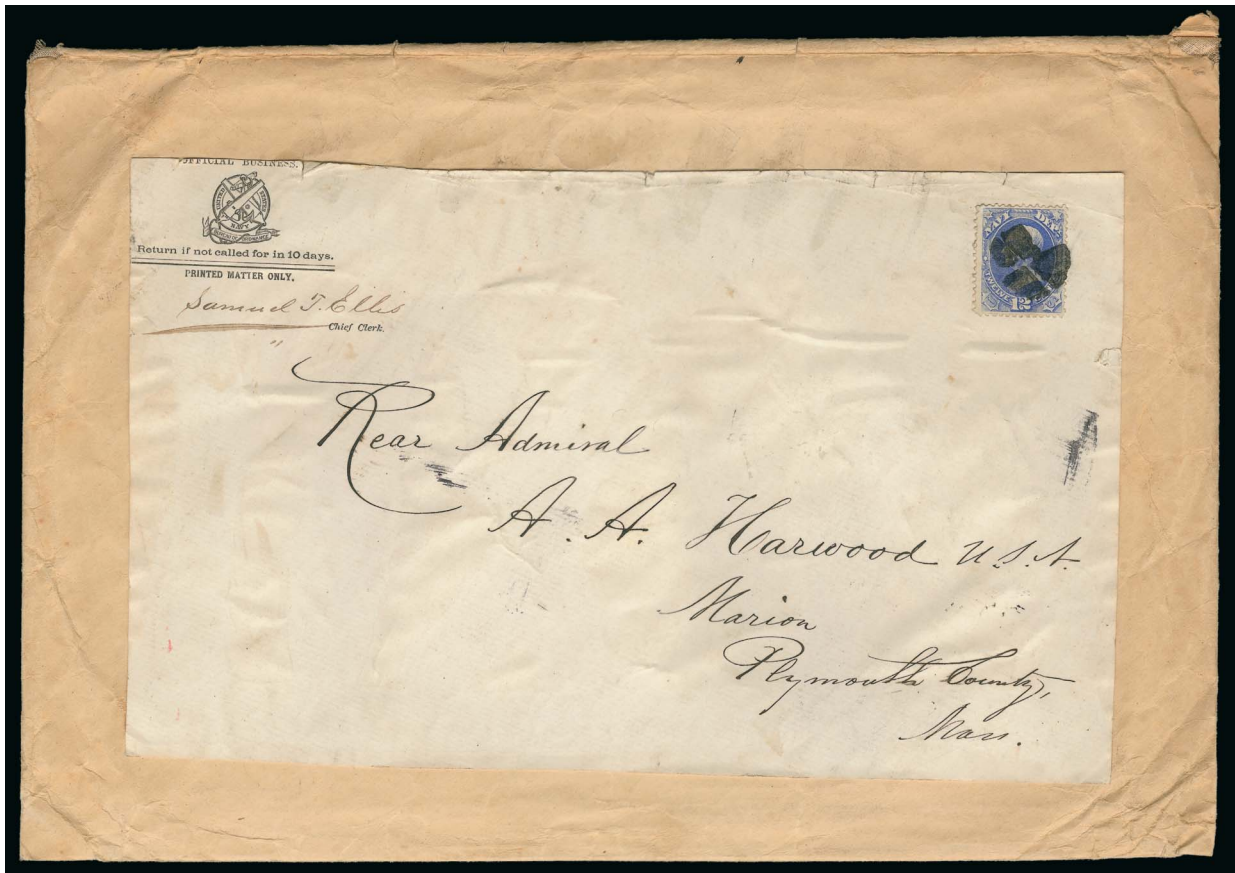 OFFICIAL BUSINESS.
UNITED STATES
NAVY
BUREAU OF ORDNANCE
Return if not called for in 10 days.
PRINTED MATTER ONLY.
Samuel T. Ellis
Chief Clerk.
NAVY DEP
TWELVE
12
Rear Admiral
A. A. Harwood U.S.N.
Marion
Plymouth County,
Mass.